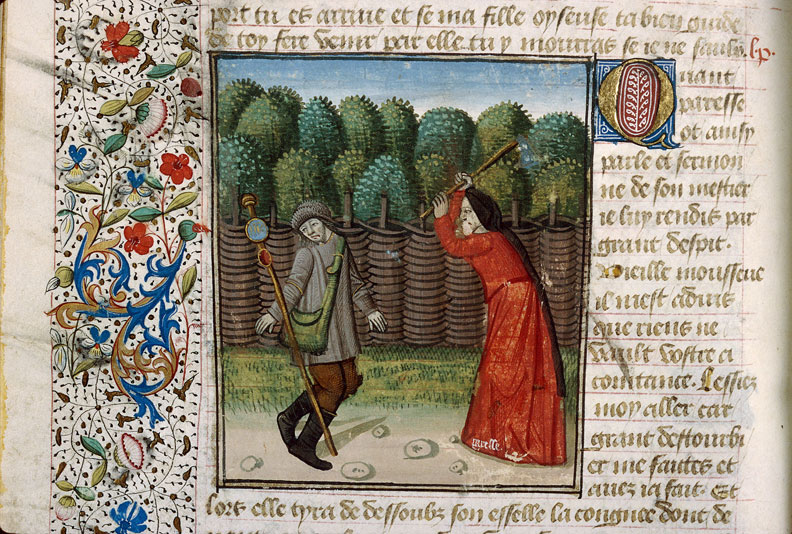 port tu es arriue et se ma fille oyseuse ta bien guide
de toy fere venir par elle. tu y mourras se ie ne faulx. lp.
Quant
paresse
ot ainsy
parle et sermon
ne de son mestier
ie luy rendis par
grant despit.
Vieille mousseue
il mest aduis
que riens ne
vault vostre a
cointance. Lessiez
moy aller car
grant destourbi
er me faites et
auez ia fait. Et
lors elle tyra de dessoubz son esselle la coingnee dont de
paresse